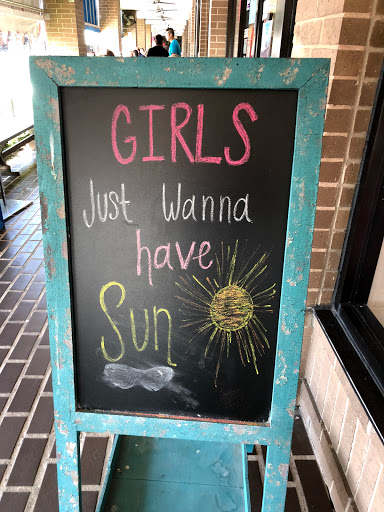 GIRLS
Just Wanna
have
Sun